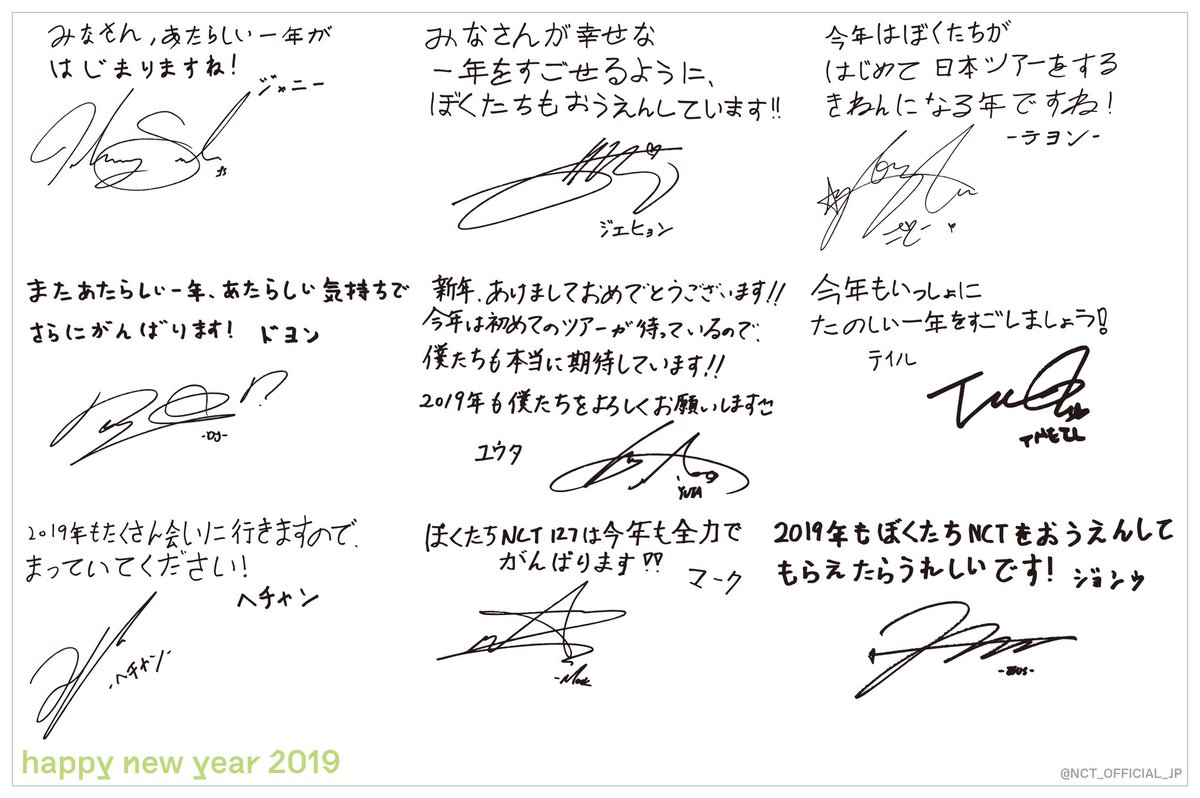 みなさん,あたらしい一年が
はじまりますね!
ジャニー
Js
みなさんが幸せな
一年をすごせるように、
ぼくたちもおうえんしています!!
ジェヒョン
今年はぼくたちが
はじめて 日本ツアーをする
きねんになる年ですね!
-テヨン-
またあたらしい一年、あたらしい気持ちで
さらにがんばります!
ドヨン
-DY-
新年、あけましておめでとうございます!!
今年は初めてのツアーが待っているので、
僕たちも本当に期待しています!!
2019年も僕たちをよろしくお願いします
ユウタ
YUTA
今年もいっしょに
たのしい一年をすごしましょう!
テイル
2019年もたくさん会いに行きますので、
まっていてください!
ヘチャン
ヘチャン
ぼくたちNCT 127は今年も全力で
がんばります!!
マーク
-Mark
2019年もぼくたちNCTをおうえんして
もらえたらうれしいです!
ジョンウ
happy new year 2019
@NCT_OFFICIAL_JP